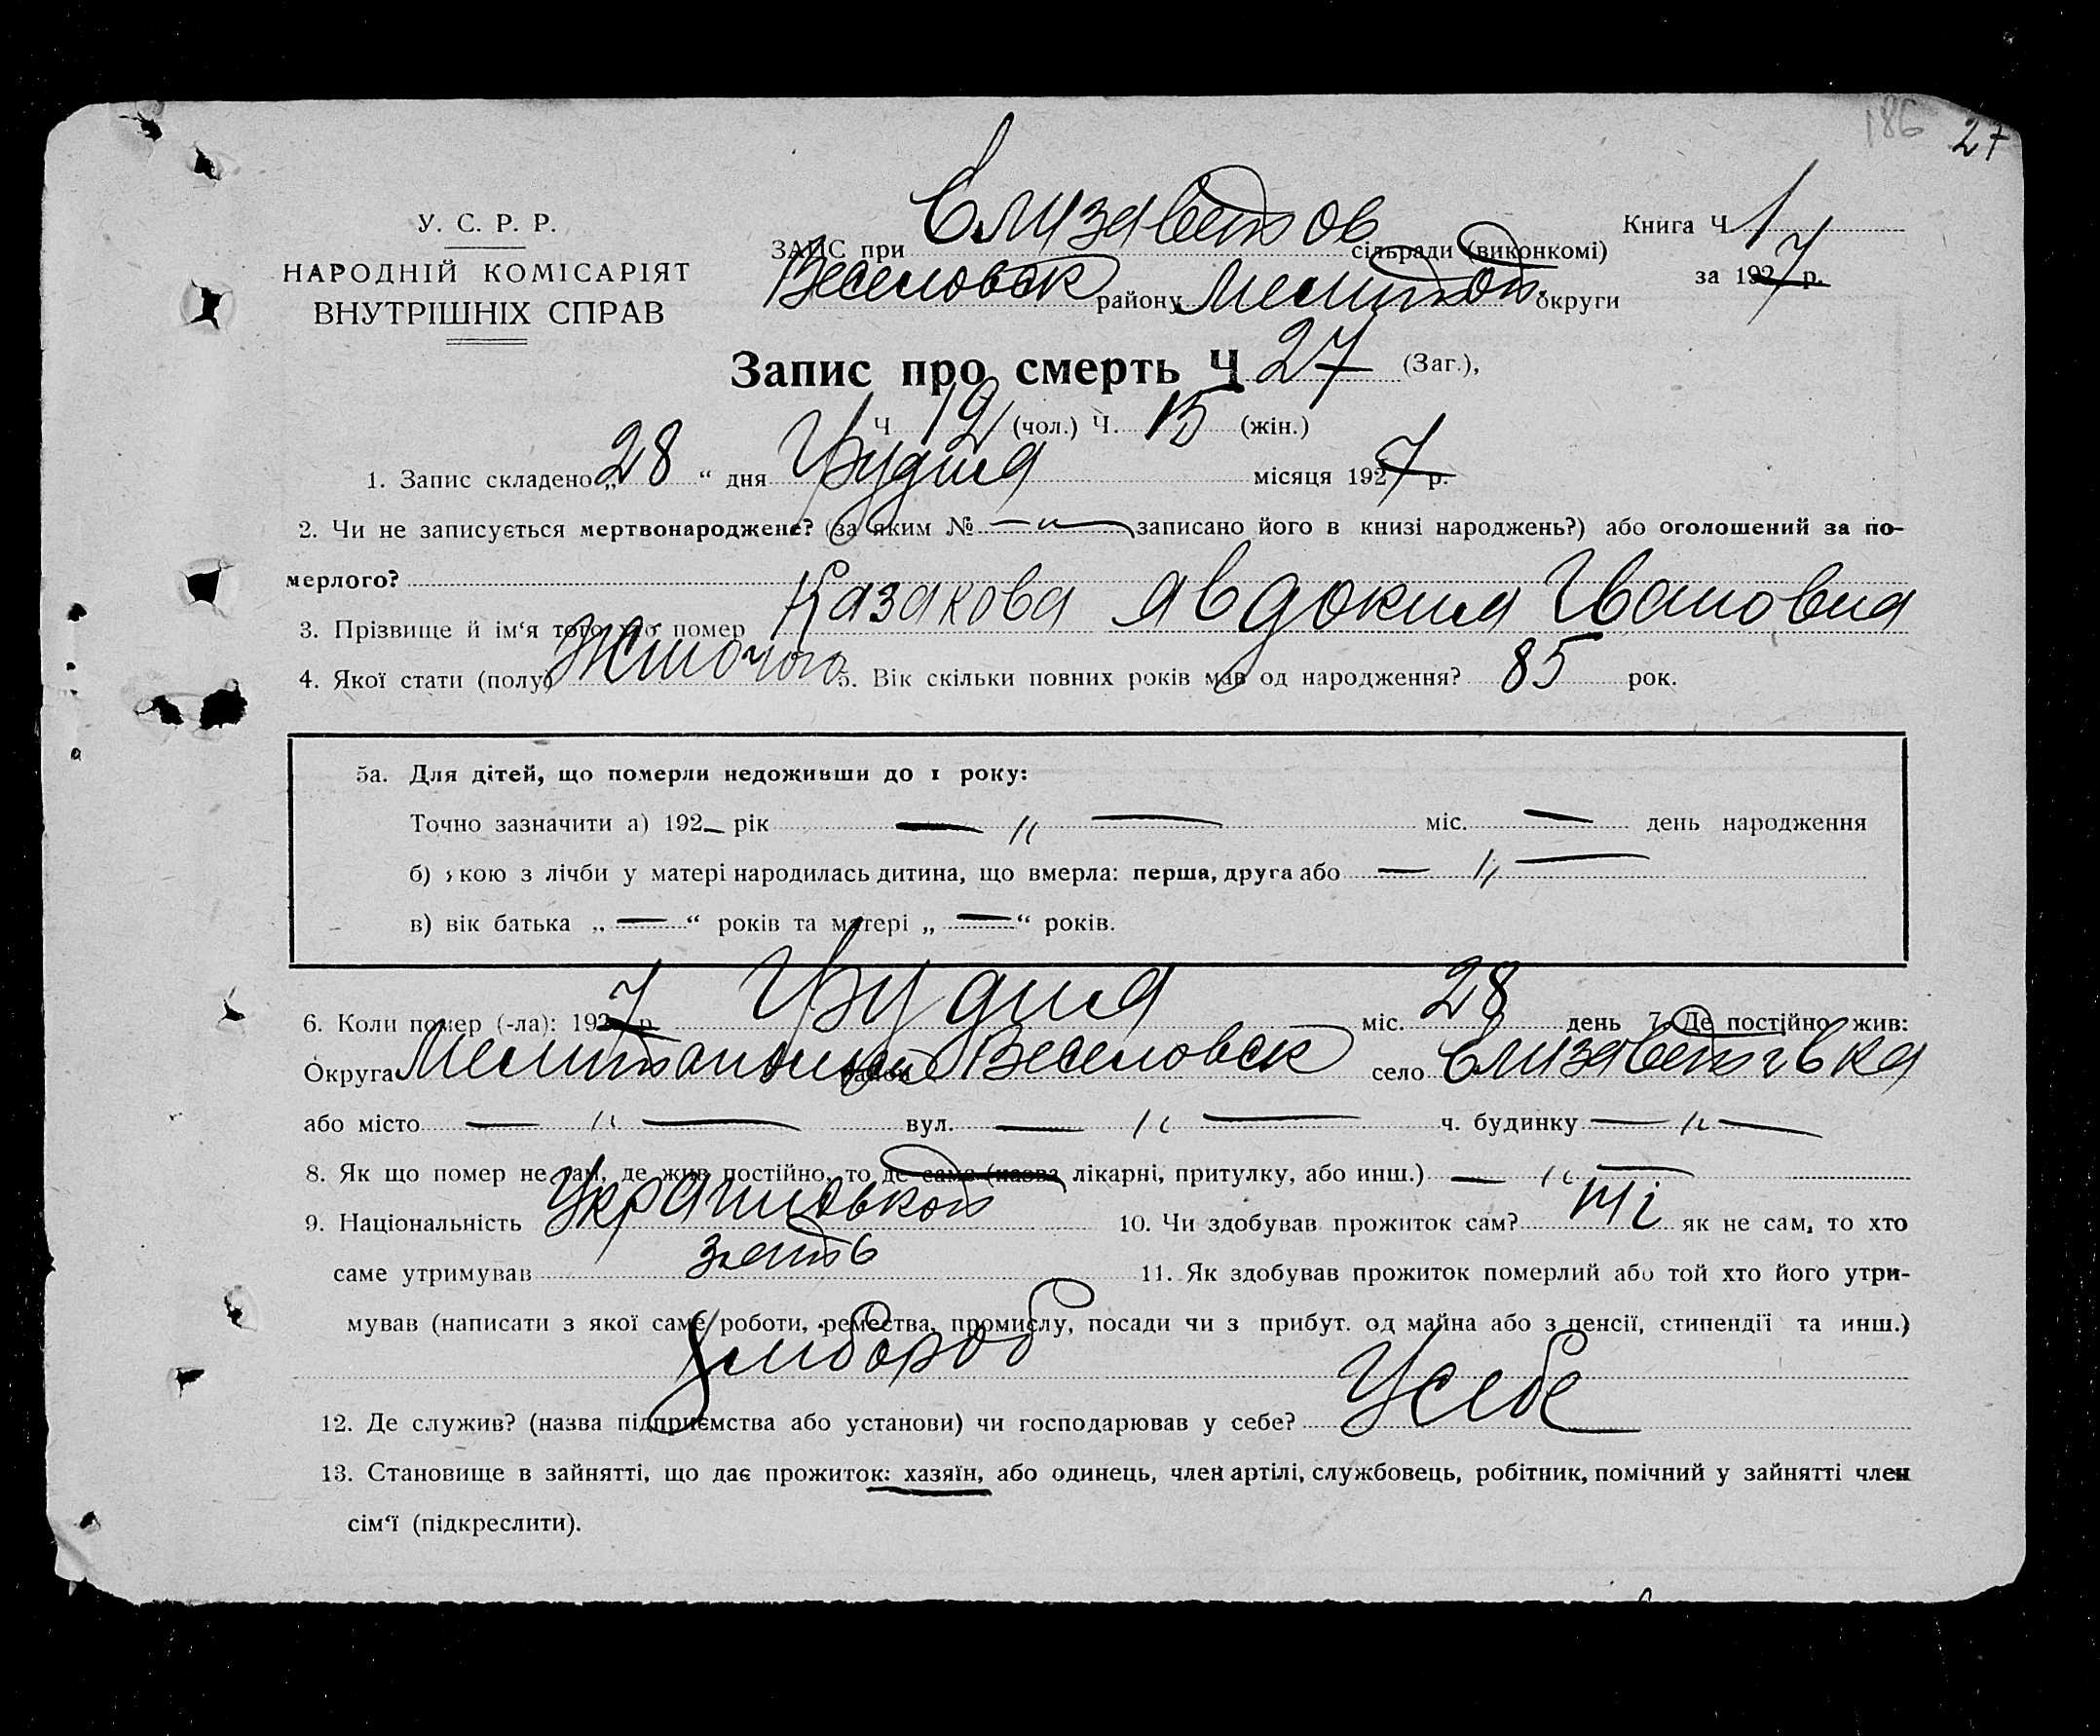 186 27
У. С. Р. Р.
НАРОДНІЙ КОМІСАРІЯТ
ВНУТРІШНІХ СПРАВ
ЗАГС при Єлизаветов сільради (виконкомі)
Веселовск району Мелитоп. округи
Книга Ч 1
за 1927 р.
Запис про смерть Ч 27 (Заг.),
Ч 12 (чол.) Ч. 15 (жін.)
1. Запис складено „28“ дня Грудня місяця 1927 р.
2. Чи не записується мертвонароджене? (за яким № — „ — записано його в книзі народжень?) або оголошений за по-
мерлого?
3. Прізвище й ім‘я того, хто помер Казакова Явдокия Ивановна
4. Якої стати (полу) Жіночого 5. Вік скільки повних років мав од народження? 85 рок.
5а. Для дітей, що померли недоживши до 1 року:
Точно зазначити а) 192— рік — „ — міс. — день народження
б) якою з лічби у матері народилась дитина, що вмерла: перша, друга або — „ —
в) вік батька „—“ років та матері „—“ років.
6. Коли помер (-ла): 1927 р. Грудня міс. 28 день 7. Де постійно жив:
Округа Мелитопольськ район Веселовск село Єлизаветівка
або місто — „ — вул. — „ — ч. будинку — „ —
8. Як що помер не там, де жив постійно, то де саме (назва лікарні, притулку, або инш.) — „ —
9. Національність Українськой 10. Чи здобував прожиток сам? ні як не сам, то хто
саме утримував зять 11. Як здобував прожиток померлий або той хто його утри-
мував (написати з якої саме роботи, ремества, промислу, посади чи з прибут. од майна або з пенсії, стипендії та инш.)
Хлібороб
12. Де служив? (назва підприємства або установи) чи господарював у себе? У себе
13. Становище в зайнятті, що дає прожиток: хазяїн, або одинець, член артілі, службовець, робітник, помічний у зайнятті член
сім‘ї (підкреслити).